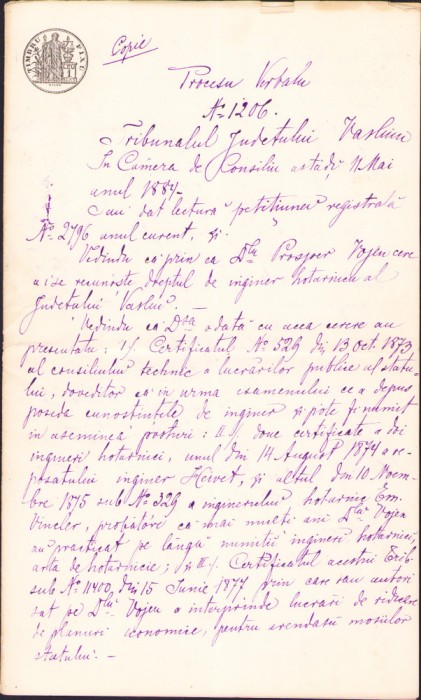 TIMBRU FIX
Copie
Procesu Verbalu
No 1206.
Tribunalul Judetului Vasluiu
In Camera de Consiliu astădĭ 11 Mai
anul 1884.
S'au dat lectură petitiunei registrată
No 2796 anul curent, și
Vedindu că prin ea Dlu Prosper Vojen cere
a i se recunoște dreptul de inginer hotarnicu al
Judetului Vaslui. —
Vedindu că Dsa odată cu acea cerere au
presentatu: I/. Certificatul No 529 din 13 oct. 1873
al consiliului technic a lucrărilor publice al statu-
lui, doveditor că în urma esamenului ce a depus
poseda cunostintele de inginer și pote fi numit
in asemenea posturi: II/. doue certificate a doi
ingineri hotarnici, unul din 14 August 1874 a re-
posatului inginer și altul din 10 Noem-
bre 1875 sub No 329 a inginerului hotarnic Em.
Vincler, probatóre că mai multi ani Dlu Vojen
au practicat pe lângă numitii ingineri hotarnici,
arta de hotarnicie; și III/. Certificatul acestui Trib.
sub No 11400, din 15 Iunie 1877 prin care s'au autori-
sat pe Dlu Vojen a intreprinde lucrări de ridicare
de planuri economice, pentru arendasii mosiilor
statului. —